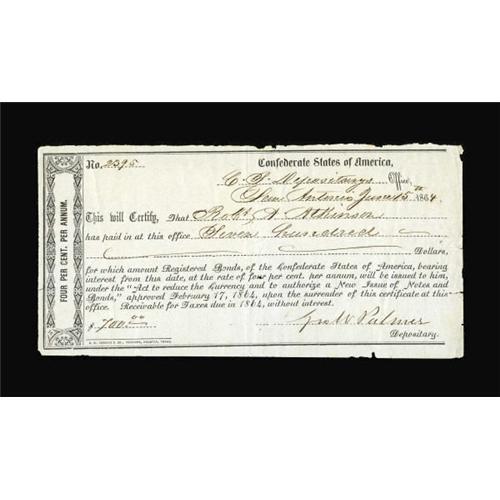 No. 2395
Confederate States of America,
C. S. Depositary's Office,
San Antonio June 15th 1864.
This will Certify, That Robt A. Atkinson
has paid in at this office Seven hundred
Dollars,
for which amount Registered Bonds, of the Confederate States of America, bearing
interest from this date, at the rate of four per cent. per annum, will be issued to him,
under the "Act to reduce the Currency and to authorize a New Issue of Notes and
Bonds," approved February 17, 1864, upon the surrender of this certificate at this
office. Receivable for Taxes due in 1864, without interest.
$ 700.00
Jno W. Palmer
Depositary.
FOUR PER CENT. PER ANNUM.